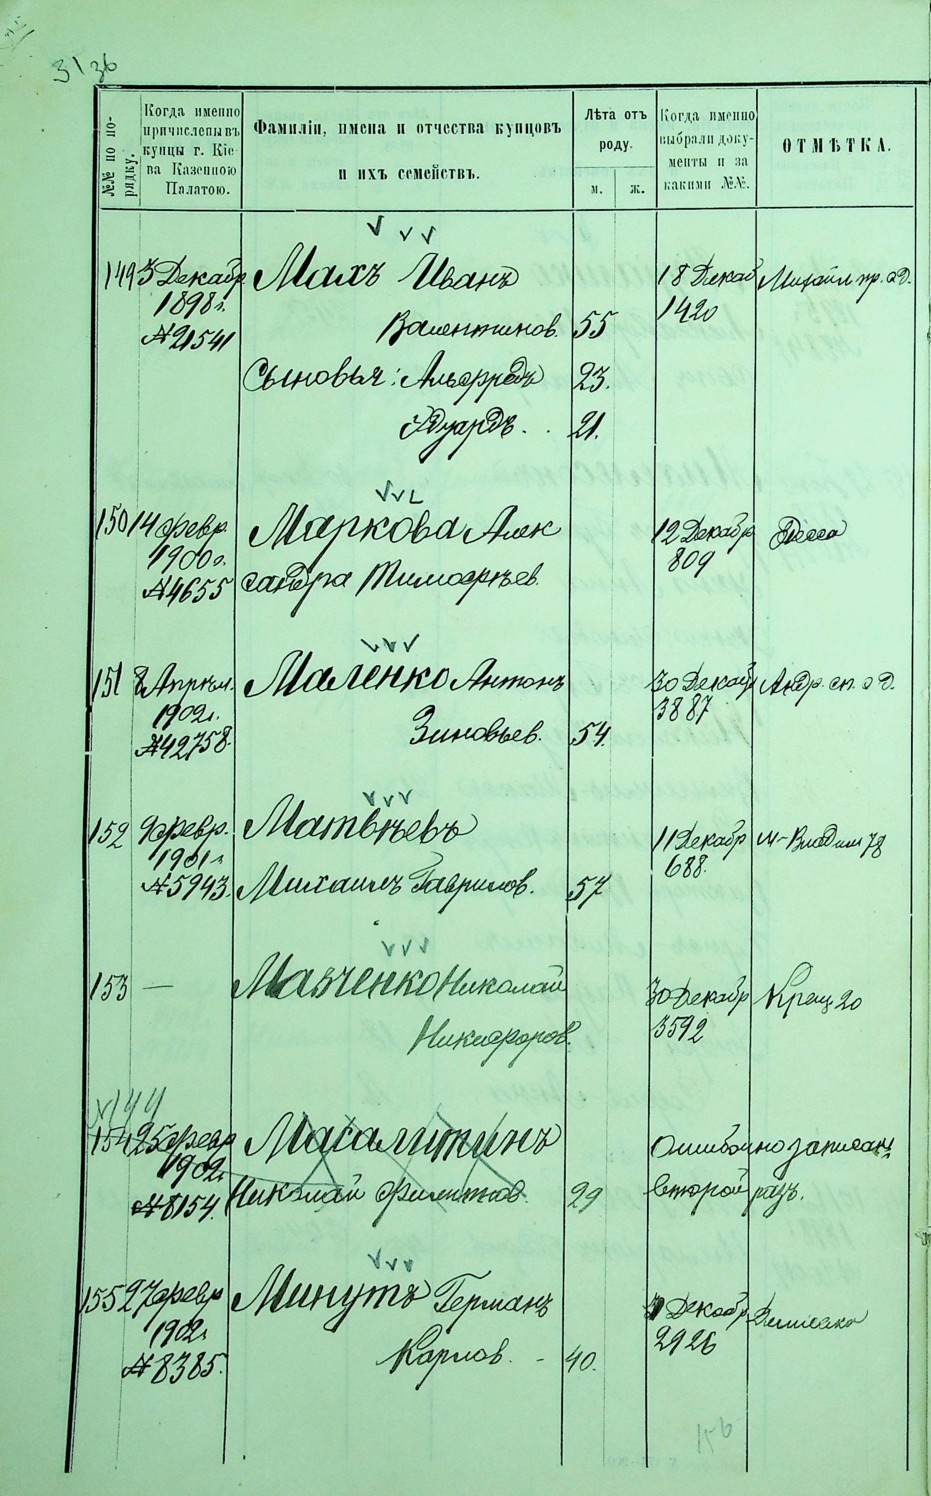 31 36
№№ по по-
рядку.
Когда именно
причислены въ
купцы г. Кіе-
ва Казенною
Палатою.
Фамиліи, имена и отчества купцовъ
и ихъ семействъ.
Лѣта отъ
роду.
м. ж.
Когда именно
выбрали доку-
менты и за
какими №№.
ОТМѢТКА.
149 3 Декабр 1898 г. № 21541
Махъ Иванъ
Валентинов. 55
Сыновья: Альфредъ 23.
Эдуардъ . . 21.
18 Декаб 1420
Михайл пр. с д.
150 14 февр. 1900 г. № 4655
Маркова Алек
сандра Тимофѣев.
12 Декабр 809
151 8 Апрѣл. 1902 г. № 42758.
Маленко Антонъ
Зиновьев. 54.
30 Декабр 3887
Андр. сп. с д.
152 9 февр. 1901 г. № 5943.
Матвѣевъ
Михаилъ Гаврилов. 57
11 Декабр 688.
М-Владим 78
153 —
Николай
Никифоров.
30 Декабр 3592
Крещ 20
154 25 февр 1902 г. № 8154.
Масалитинъ
Николай Филиппов 29
Ошибочно записанъ
второй разъ.
155 27 февр 1902 г. № 8385.
Минутъ Германъ
Карлов. - 40.
Декабр 2926
Демиевка
156